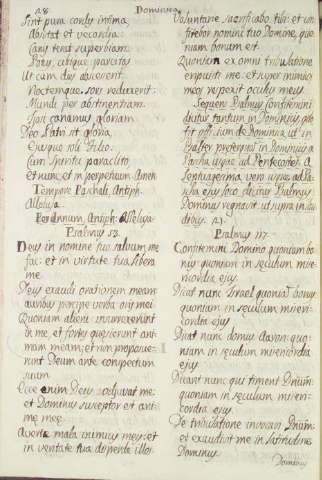 28
Dominica
Sint pura cordis intima,
Absistat et vecordia
Carnis terat superbiam
Potus, cibique parcitas
Ut cum dies abscesserit
Noctemque sors reduxerit
Mundi per abstinentiam
Ipsi canamus gloriam
Deo Patri sit gloria
Ejusque soli Filio
Cum Spiritu paraclito
et nunc, et in perpetuum. Amen
Tempore Paschali, Antiph.
Alleluja
Per Annum, Antiph: Alleluja
Psalmus 53.
Deus in nomine tuo salvum me
fac: et in virtute tua libera
me
Deus exaudi orationem meam:
auribus percipe verba oris mei
Quoniam alieni insurrexerunt
in me, et fortes quæsierunt ani-
mam meam: et non proposue-
runt Deum ante conspectum
suum
Ecce enim Deus adjuvat me:
et Dominus susceptor est ani-
mę meę
Averte mala inimicis meis: et
in veritate tua disperde illos.
Voluntarie sacrificabo tibi: et con
fitebor nomini tuo Domine, quo
niam bonum est
Quoniam ex omni tribulatione
eripuisti me: et super inimicos
meos respexit oculus meus
Sequens Psalmus Confitemini
dicitur tantum in Dominicis
Psalmus
Dominus regnavit ut supra in lau
dibus. 21.
Psalmus 117.
Confitemini Domino quoniam bo
nus: quoniam in seculum mise
ricordia ejus
Dicat nunc Israel quoniam bonus:
quoniam in seculum miseri-
cordia ejus
Dicat nunc domus Aaron: quo-
niam in seculum misericordia
ejus
Dicant nunc qui timent Dnum:
quoniam in seculum miseri-
cordia ejus
De tribulatione invocavi Dnum:
et exaudivit me in latitudine
Dominus
Dominus